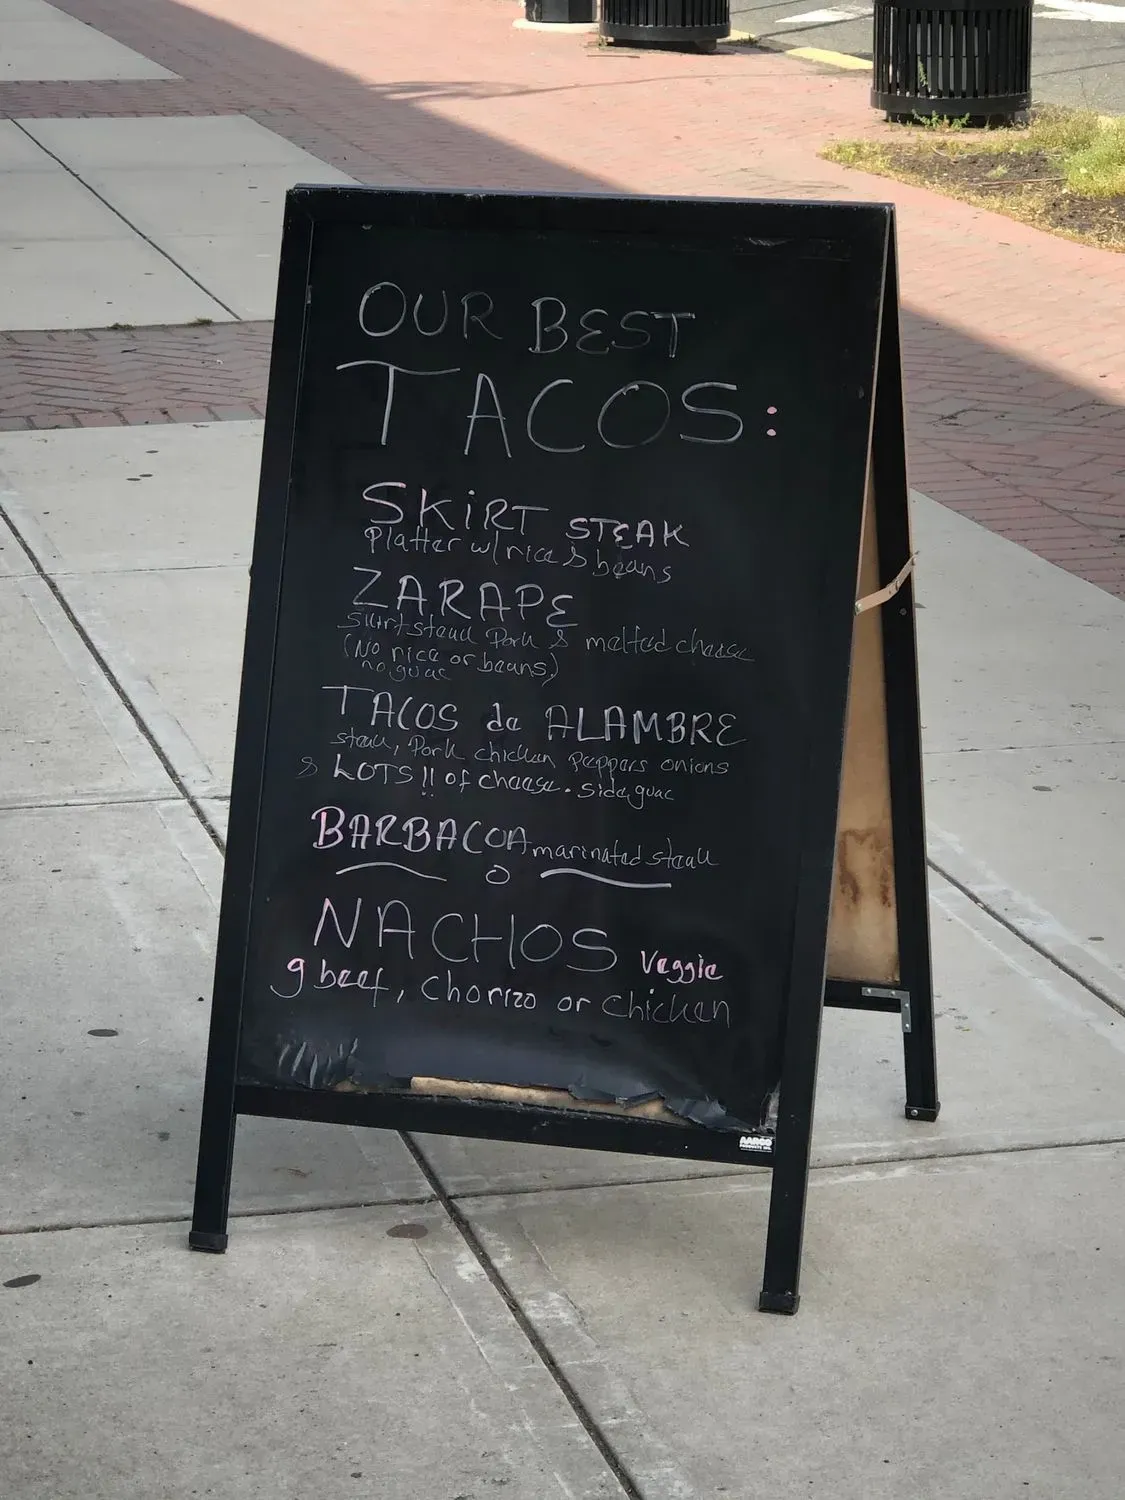 OUR BEST
TACOS:
SKIRT STEAK
Platter w/ rice & beans
ZARAPE
skirt steak Pork & melted cheese
(No rice or beans)
no guac
TACOS de ALAMBRE
steak, Pork chicken peppers onions
& LOTS!! of cheese. side guac
BARBACOA marinated steak
NACHOS veggie
g beef, chorizo or chicken
AARCO
PRODUCTS INC.